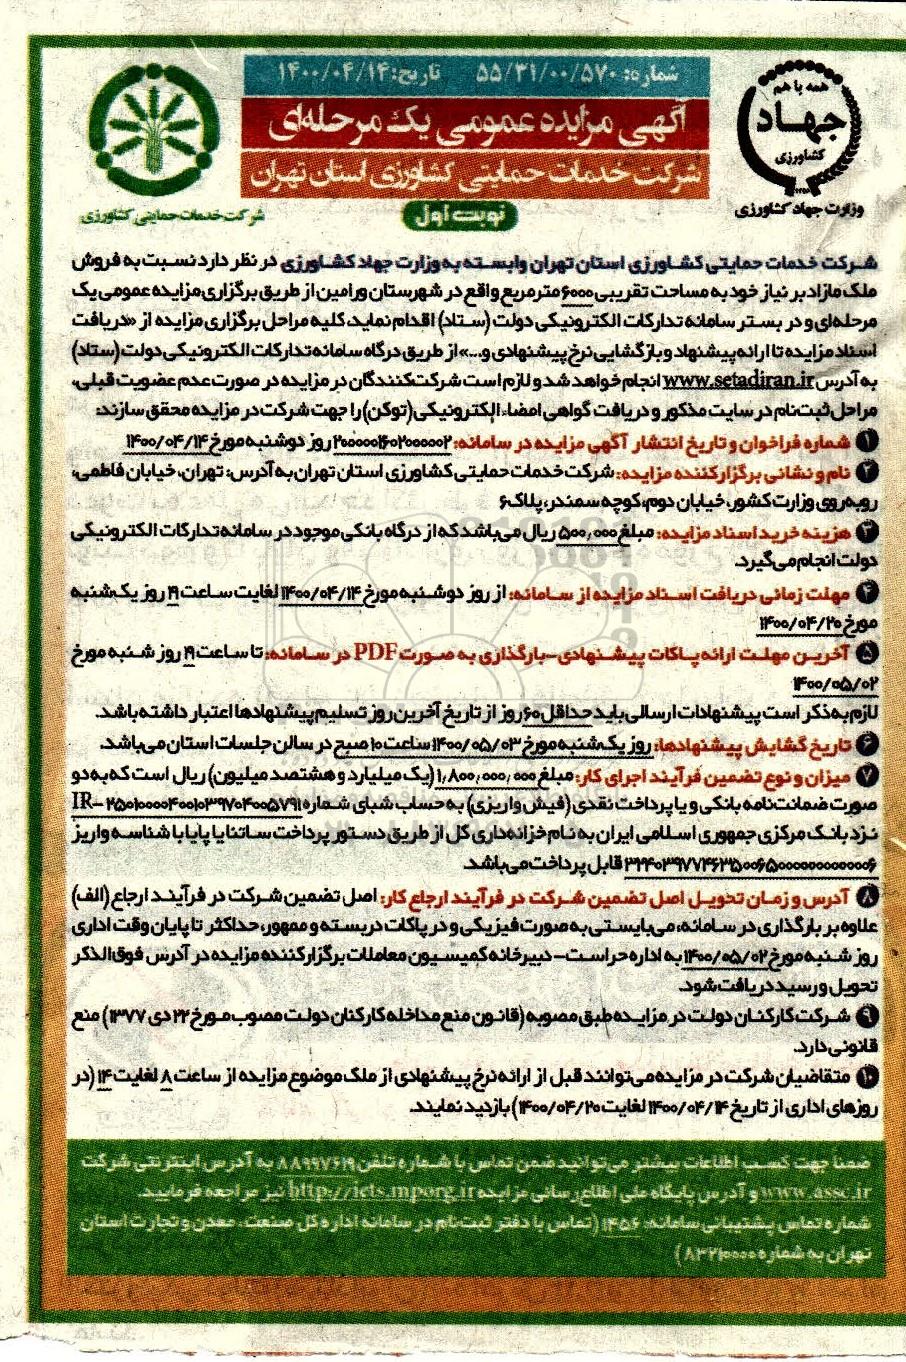 شماره: ۵۵/۳۱/۰۰/۵۷۰ تاریخ: ۱۴۰۰/۰۴/۱۴
آگهی مزایده عمومی یک مرحله‌ای
شرکت خدمات حمایتی کشاورزی استان تهران
نوبت اول
همه با هم
جهاد
کشاورزی
وزارت جهاد کشاورزی
شرکت خدمات حمایتی کشاورزی
شرکت خدمات حمایتی کشاورزی استان تهران وابسته به وزارت جهاد کشاورزی در نظر دارد نسبت به فروش
ملک مازاد بر نیاز خود به مساحت تقریبی ۶۰۰۰ مترمربع واقع در شهرستان ورامین از طریق برگزاری مزایده عمومی یک
مرحله‌ای و در بستر سامانه تدارکات الکترونیکی دولت (ستاد) اقدام نماید، کلیه مراحل برگزاری مزایده از «دریافت
اسناد مزایده تا ارائه پیشنهاد و بازگشایی نرخ پیشنهادی و...» از طریق درگاه سامانه تدارکات الکترونیکی دولت (ستاد)
به آدرس www.setadiran.ir انجام خواهد شد و لازم است شرکت‌کنندگان در مزایده در صورت عدم عضویت قبلی،
مراحل ثبت‌نام در سایت مذکور و دریافت گواهی امضاء الکترونیکی (توکن) را جهت شرکت در مزایده محقق سازند:
۱ شماره فراخوان و تاریخ انتشار آگهی مزایده در سامانه: ۲۰۰۰۰۰۱۶۰۲۰۰۰۰۰۲ روز دوشنبه مورخ ۱۴۰۰/۰۴/۱۴
۲ نام و نشانی برگزارکننده مزایده: شرکت خدمات حمایتی کشاورزی استان تهران به آدرس: تهران، خیابان فاطمی،
روبه‌روی وزارت کشور، خیابان دوم، کوچه سمندر، پلاک ۶
۳ هزینه خرید اسناد مزایده: مبلغ ۵۰۰,۰۰۰ ریال می‌باشد که از درگاه بانکی موجود در سامانه تدارکات الکترونیکی
دولت انجام می‌گیرد.
۴ مهلت زمانی دریافت اسناد مزایده از سامانه: از روز دوشنبه مورخ ۱۴۰۰/۰۴/۱۴ لغایت ساعت ۱۹ روز یک‌شنبه
مورخ ۱۴۰۰/۰۴/۲۰
۵ آخرین مهلت ارائه پاکات پیشنهادی-بارگذاری به صورت PDF در سامانه: تا ساعت ۱۹ روز شنبه مورخ
۱۴۰۰/۰۵/۰۲
لازم به ذکر است پیشنهادات ارسالی باید حداقل ۶۰ روز از تاریخ آخرین روز تسلیم پیشنهادها اعتبار داشته باشد.
۶ تاریخ گشایش پیشنهادها: روز یک‌شنبه مورخ ۱۴۰۰/۰۵/۰۳ ساعت ۱۰ صبح در سالن جلسات استان می‌باشد.
۷ میزان و نوع تضمین فرآیند اجرای کار: مبلغ ۱,۸۰۰,۰۰۰,۰۰۰ (یک میلیارد و هشتصد میلیون) ریال است که به دو
صورت ضمانت‌نامه بانکی و یا پرداخت نقدی (فیش واریزی) به حساب شبای شماره IR-
نزد بانک مرکزی جمهوری اسلامی ایران به نام خزانه‌داری کل از طریق دستور پرداخت ساتنا یا پایا با شناسه واریز
قابل پرداخت می‌باشد.
۸ آدرس و زمان تحویل اصل تضمین شرکت در فرآیند ارجاع کار: اصل تضمین شرکت در فرآیند ارجاع (الف)
علاوه بر بارگذاری در سامانه، می‌بایستی به صورت فیزیکی و در پاکات دربسته و ممهور، حداکثر تا پایان وقت اداری
روز شنبه مورخ ۱۴۰۰/۰۵/۰۲ به اداره حراست- دبیرخانه کمیسیون معاملات برگزارکننده مزایده در آدرس فوق‌الذکر
تحویل و رسید دریافت شود.
۹ شرکت کارکنان دولت در مزایده طبق مصوبه (قانون منع مداخله کارکنان دولت مصوب مورخ ۲۲ دی ۱۳۷۷) منع
قانونی دارد.
۱۰ متقاضیان شرکت در مزایده می‌توانند قبل از ارائه نرخ پیشنهادی از ملک موضوع مزایده از ساعت ۸ لغایت ۱۴ (در
روزهای اداری از تاریخ ۱۴۰۰/۰۴/۱۴ لغایت ۱۴۰۰/۰۴/۲۰) بازدید نمایند.
ضمناً جهت کسب اطلاعات بیشتر می‌توانید ضمن تماس با شماره تلفن ۸۸۹۹۷۶۱۹ به آدرس اینترنتی شرکت
www.assc.ir و آدرس پایگاه ملی اطلاع‌رسانی مزایده http://iets.mporg.ir نیز مراجعه فرمایید.
شماره تماس پشتیبانی سامانه: ۱۴۵۶ (تماس با دفتر ثبت‌نام در سامانه اداره کل صنعت، معدن و تجارت استان
تهران به شماره ۸۳۲۱۰۰۰۰)